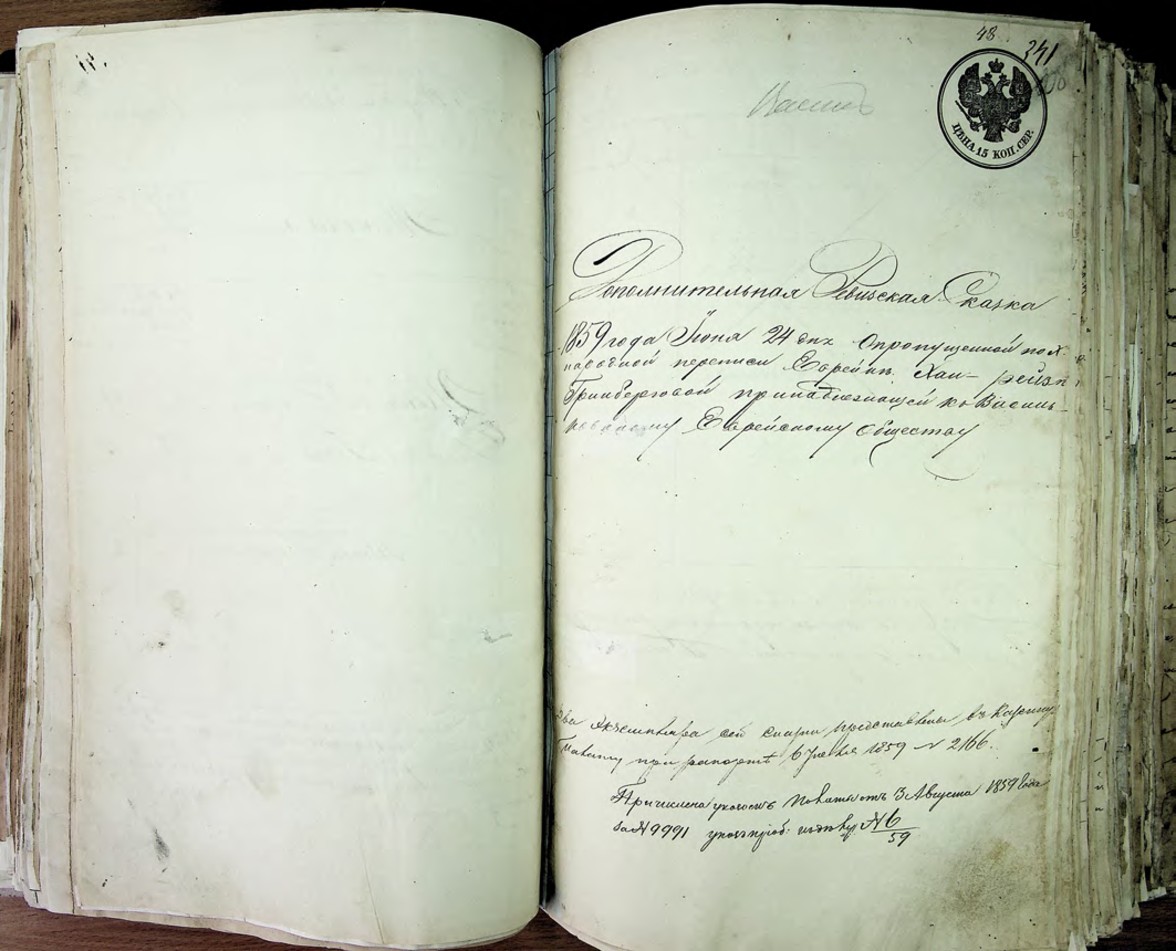 48
241
Васил
ЦѢНА 15 КОП. СЕР.
Дополнительная Ревизская Сказка
1859 года Іюня 24 дня О пропущенной по X
народной переписи Еврейкѣ Хаи-рейзѣ
Гринберговой принадлежащей ко Василь-
ковскому Еврейскому обществу
Два экземпляра сей сказки представлены въ Казенную
Палату при рапортѣ 6 1859 № 2166.
Причислена указомъ Палаты отъ 3 Августа 1859 года
за № 9991 № 6
59